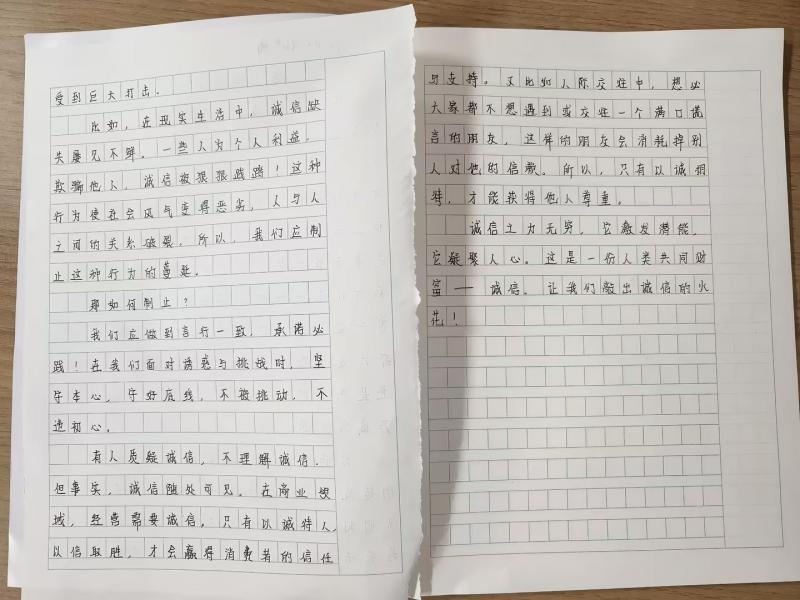 受到巨大打击。
比如，在现实生活中，诚信缺
失屡见不鲜。一些人为个人利益。
欺骗他人，诚信被狠狠践踏！这种
行为使社会风气变得恶劣，人与人
之间的关系破裂。所以，我们应制
止这种行为的蔓延。
那如何制止？
我们应做到言行一致，承诺必
践！在我们面对诱惑与挑战时，坚
守本心，守好底线，不被挑动，不
违初心。
有人质疑诚信，不理解诚信.
但事实，诚信随处可见。在商业领
域，经营需要诚信。只有以诚待人，
以信取胜，才会赢得消费者的信任
与支持。又比如人际交往中，想必
大家都不想遇到或交往一个满口谎
言的朋友，这样的朋友会消耗掉别
人对他的信赖。所以，只有以诚相
待，才能获得他人尊重。
诚信之力无穷，它激发潜能，
它凝聚人心。这是一份人类共同财
富——诚信。让我们敲出诚信的火
花！